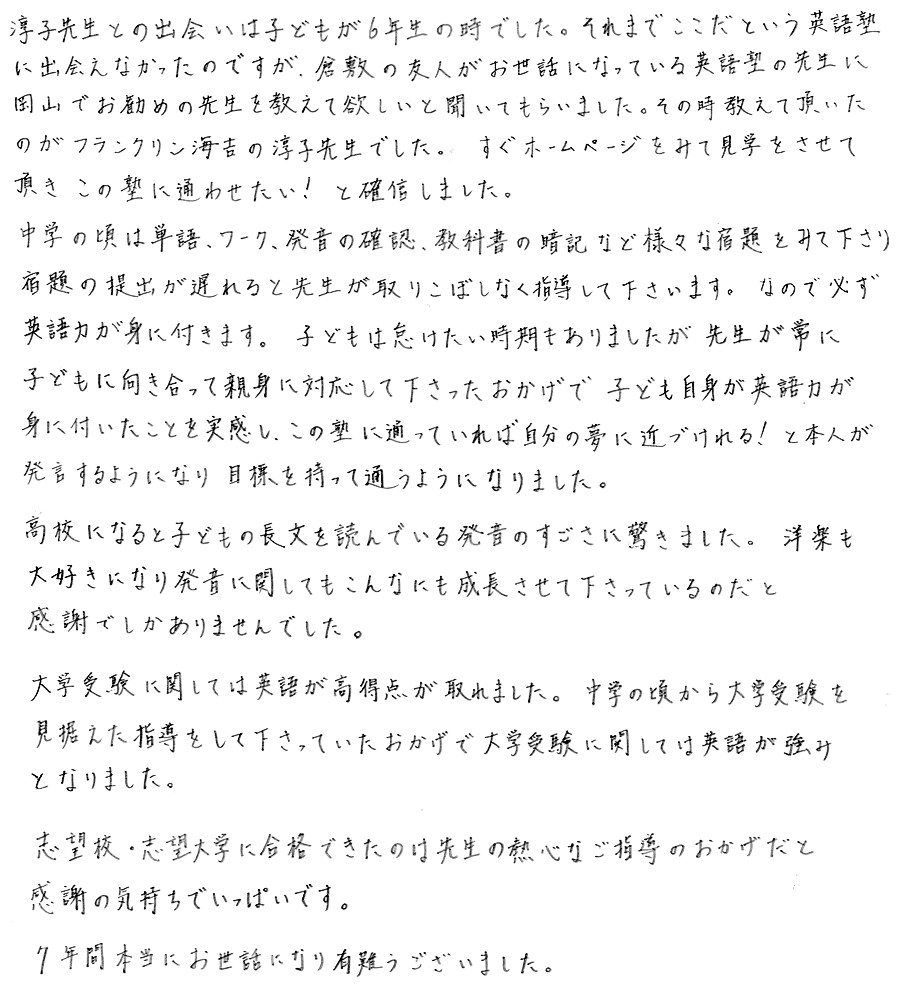 淳子先生との出会いは子どもが6年生の時でした。それまでここだという英語塾
に出会えなかったのですが、倉敷の友人がお世話になっている英語塾の先生に
岡山でお勧めの先生を教えて欲しいと聞いてもらいました。その時教えて頂いた
のがフランクリン海吉の淳子先生でした。 すぐホームページをみて見学をさせて
頂き この塾に通わせたい! と確信しました。
中学の頃は単語、ワーク、発音の確認、教科書の暗記など様々な宿題をみて下さり
宿題の提出が遅れると先生が取りこぼしなく指導して下さいます。 なので必ず
英語力が身に付きます。 子どもは怠けたい時期もありましたが 先生が常に
子どもに向き合って親身に対応して下さったおかげで 子ども自身が英語力が
身に付いたことを実感し、この塾に通っていれば自分の夢に近づけれる! と本人が
発言するようになり 目標を持って通うようになりました。
高校になると子どもの長文を読んでいる発音のすごさに驚きました。 洋楽も
大好きになり発音に関してもこんなにも成長させて下さっているのだと
感謝でしかありませんでした。
大学受験に関しては英語が高得点が取れました。 中学の頃から大学受験を
見据えた指導をして下さっていたおかげで大学受験に関しては英語が強み
となりました。
志望校・志望大学に合格できたのは先生の熱心なご指導のおかげだと
感謝の気持ちでいっぱいです。
7年間本当にお世話になり有難うございました。